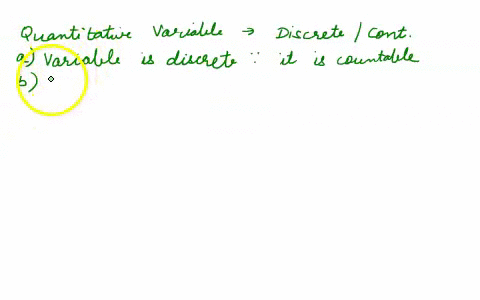 Quantitative Variable → Discrete / Cont.
a) Variable is discrete ∵ it is countable
b)